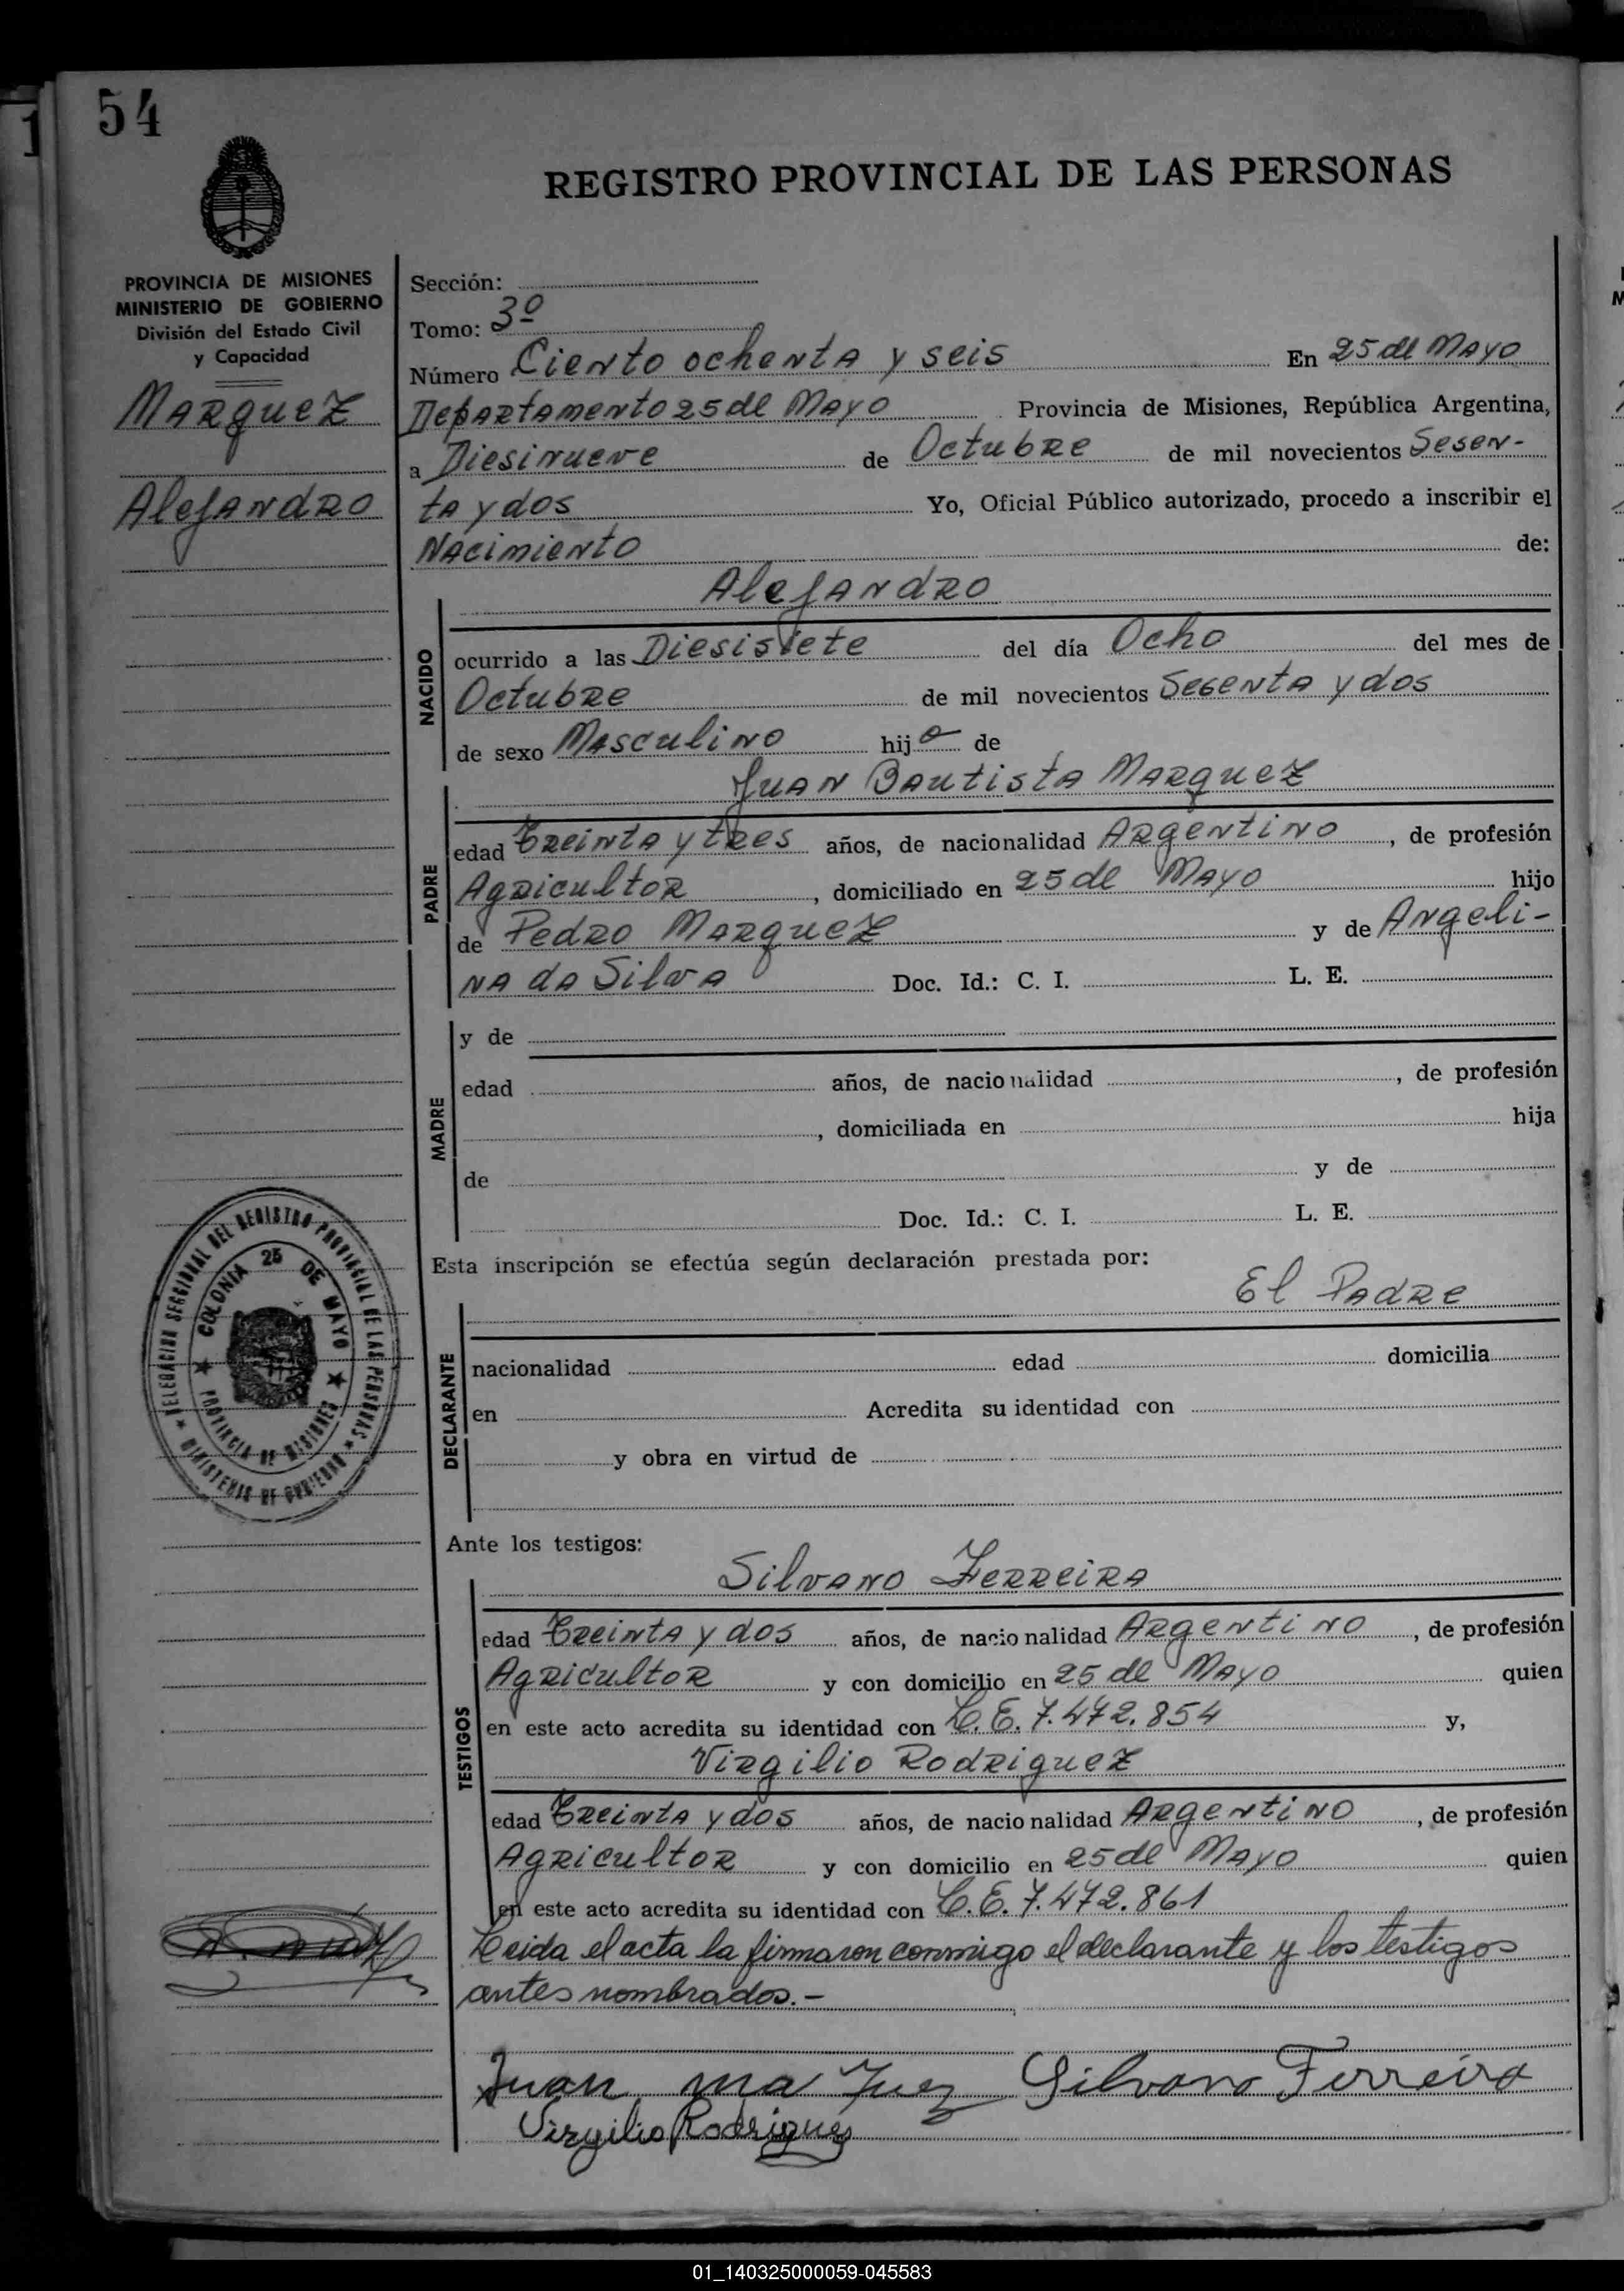 54
REGISTRO PROVINCIAL DE LAS PERSONAS
PROVINCIA DE MISIONES
MINISTERIO DE GOBIERNO
División del Estado Civil
y Capacidad
Marquez
Alejandro
Sección:
Tomo: 3º
Número Ciento ochenta y seis En 25 de Mayo
Departamento 25 de Mayo Provincia de Misiones, República Argentina,
a Diesinueve de Octubre de mil novecientos Sesen-
ta y dos Yo, Oficial Público autorizado, procedo a inscribir el
Nacimiento de:
Alejandro
NACIDO
ocurrido a las Diesisiete del día Ocho del mes de
Octubre de mil novecientos Sesenta y dos
de sexo Masculino hijo de
Juan Bautista Marquez
PADRE
edad Treinta y tres años, de nacionalidad Argentino, de profesión
Agricultor, domiciliado en 25 de Mayo hijo
de Pedro Marquez y de Angeli-
na da Silva Doc. Id.: C. I. L. E.
MADRE
y de
edad años, de nacionalidad , de profesión
, domiciliada en hija
de y de
Doc. Id.: C. I. L. E.
Esta inscripción se efectúa según declaración prestada por:
El Padre
DECLARANTE
nacionalidad edad domicilia
en Acredita su identidad con
y obra en virtud de
DELEGACION SECCIONAL DEL REGISTRO PROVINCIAL DE LAS PERSONAS
★ MINISTERIO DE GOBIERNO ★
COLONIA 25 DE MAYO
★ PROVINCIA DE MISIONES ★
Ante los testigos:
Silvano Ferreira
TESTIGOS
edad Treinta y dos años, de nacionalidad Argentino, de profesión
Agricultor y con domicilio en 25 de Mayo quien
en este acto acredita su identidad con L. E. 7.472.854 y,
Virgilio Rodriguez
edad Treinta y dos años, de nacionalidad Argentino, de profesión
Agricultor y con domicilio en 25 de Mayo quien
en este acto acredita su identidad con L. E. 7.472.861
Leida el acta la firmaron conmigo el declarante y los testigos
antes nombrados.-
Juan marquez Silvano Ferreira
Virgilio Rodriguez
01_140325000059-045583